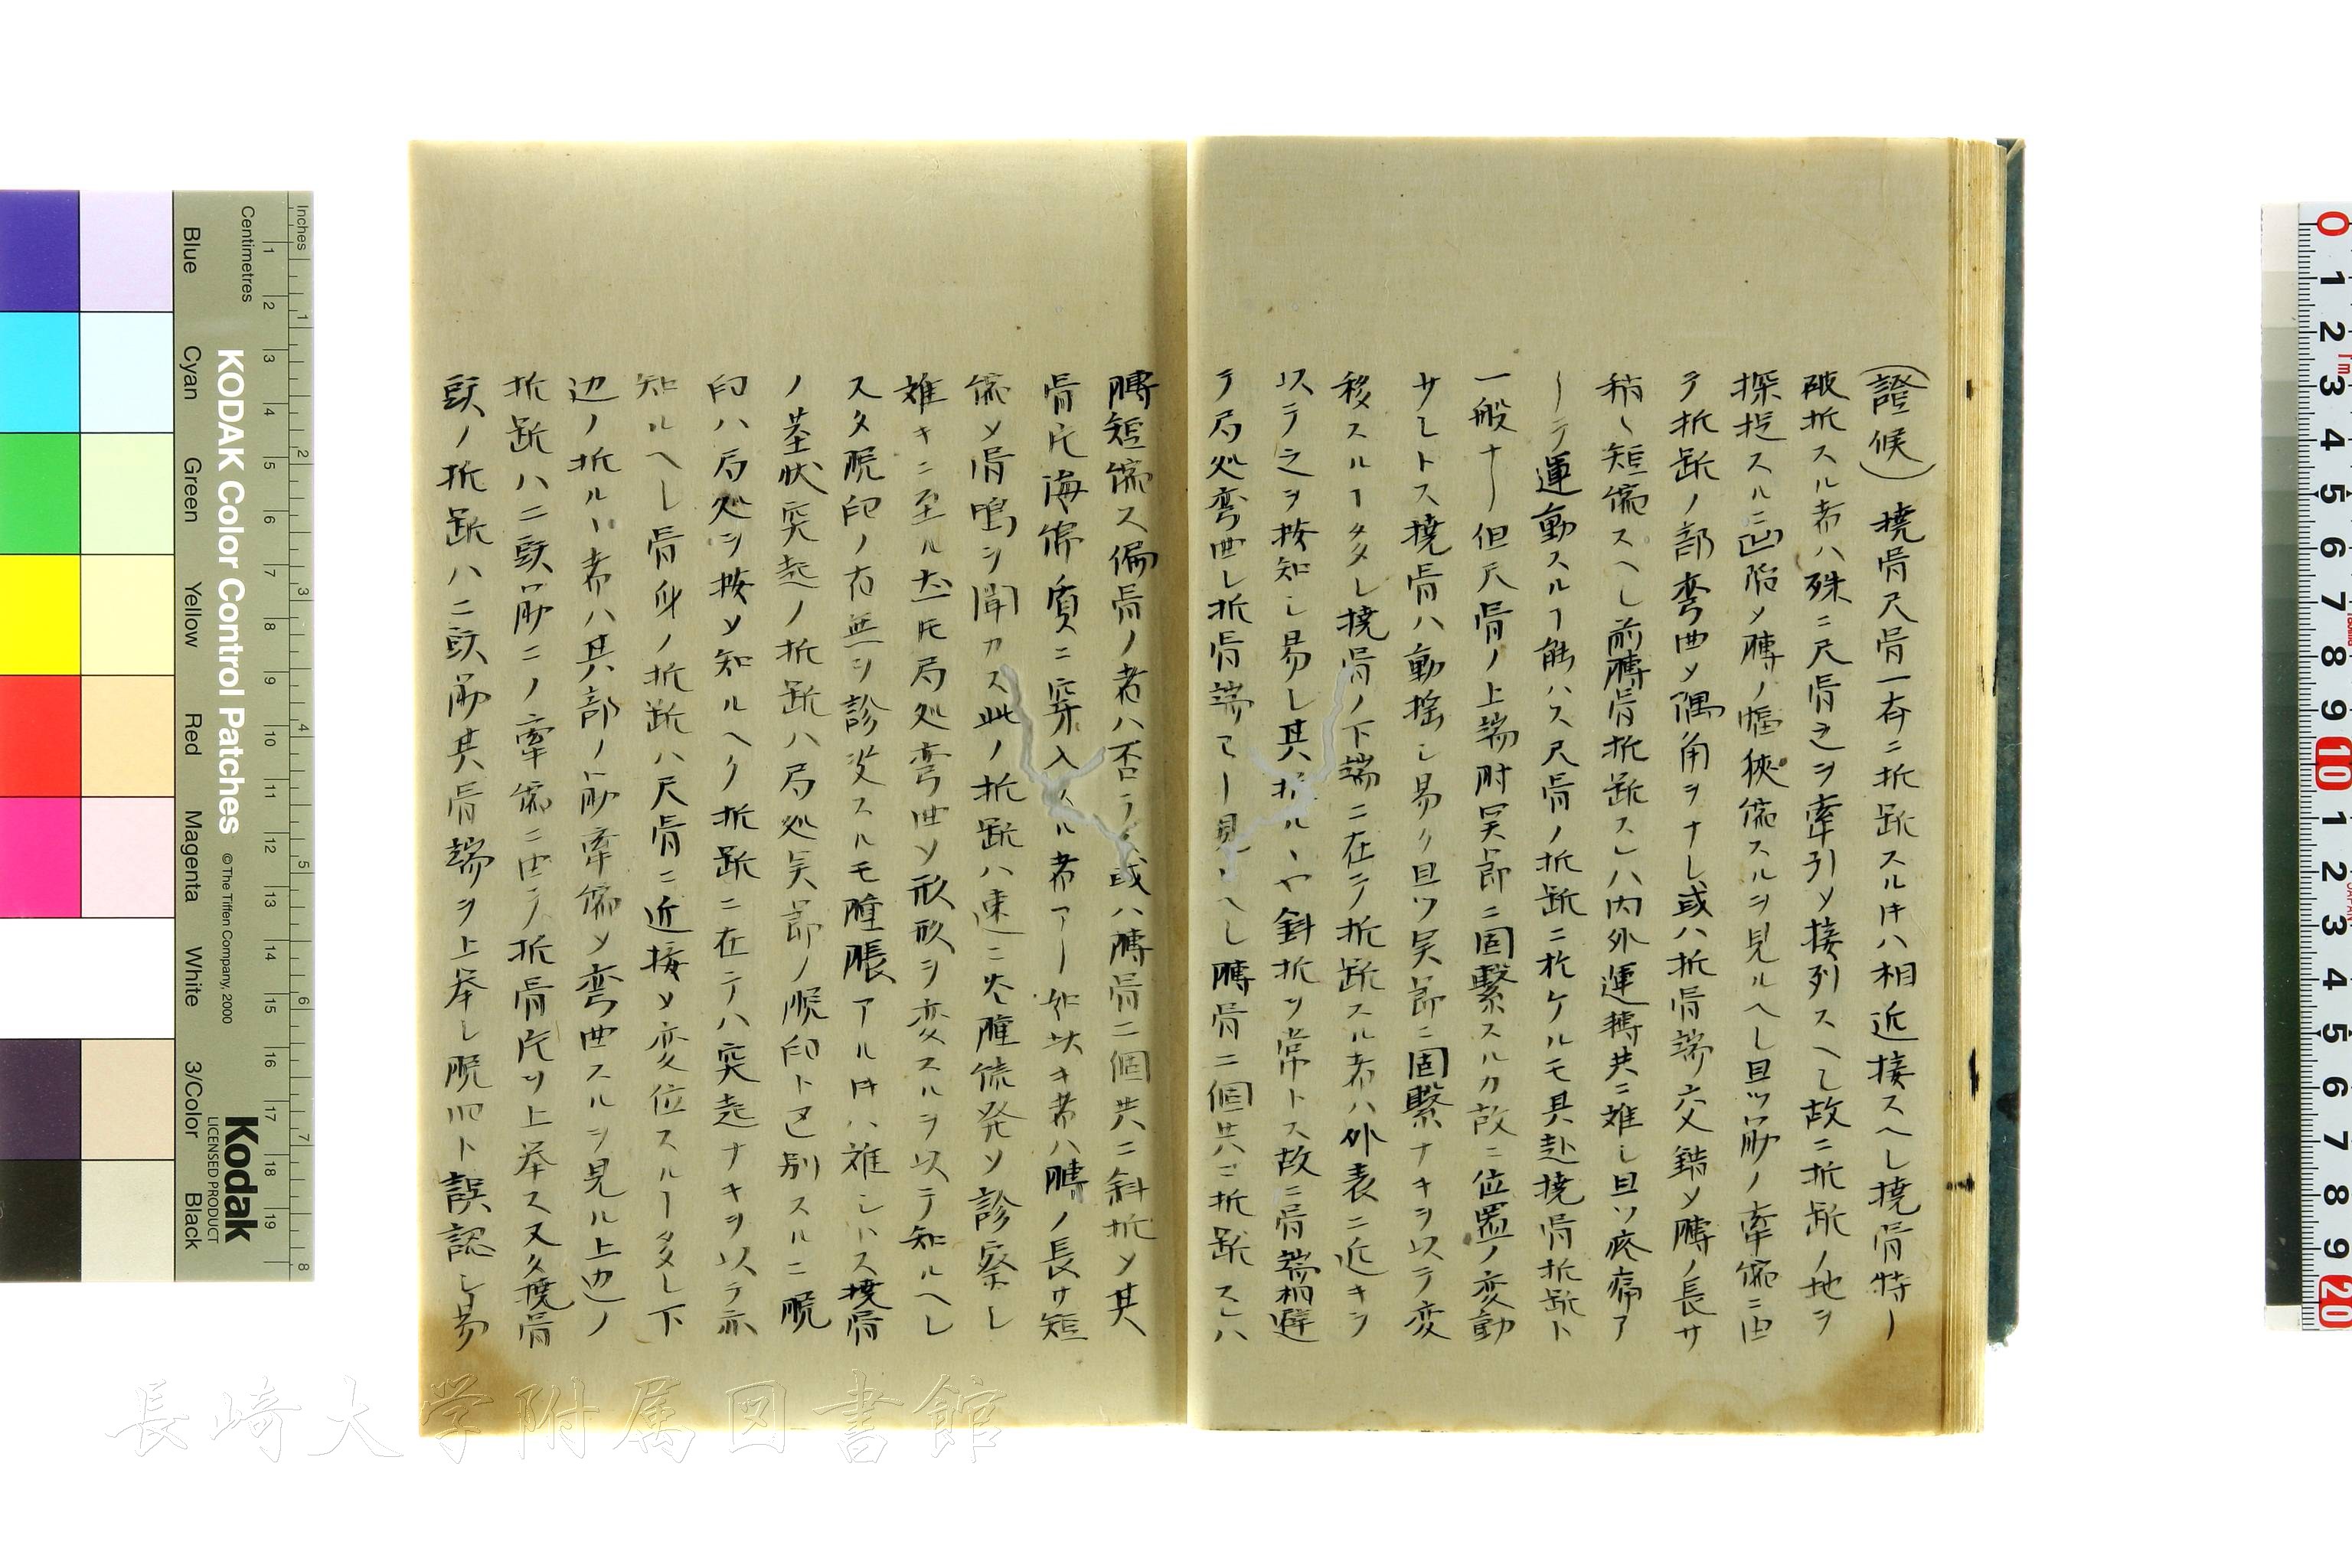 (證候) 撓骨尺骨一存ニ折跀スル片ハ相近接スヘし撓骨特ー
破折スル者ハ殊ニ尺骨之ヲ牽引メ接列スヘし故ニ折跀ノ地ヲ
探捉スルニ凹陷メ膊ノ幅狹縮スルヲ見ルヘし且ツ筋ノ牽縮ニ由
テ折跀ノ部弯曲メ偶角ヲナし或ハ折骨端交錯メ膊ノ長サ
稍短縮スヘし前膊骨折跀スレハ内外運轉共ニ難し且ツ疼痛ア
ーテ運動スルヿ能ハス尺骨ノ折跀ニ於ケルモ具赴撓骨折跀ト
一般ナー但尺骨ノ上端肘関節ニ固繋スルカ故ニ位置ノ変動
サしトス撓骨ハ動揺し易ク且ツ関節ニ固繋ナキヲ以テ変
移スルヿ多し撓骨ノ下端ニ在テ折跀スル者ハ外表ニ近キヲ
以テ之ヲ按知し易し其折ルヽヤ斜折ヲ常トス故ニ骨端相避
テ局処弯曲し折骨端ヲ見ヘし膊骨二個共ニ折跀スレハ
膊短縮ス偏骨ノ者ハ否ラス或ハ膊骨二個共ニ斜折メ其
骨片海綿質ニ穿入スル者アー如此キ者ハ膊ノ長サ短
縮メ骨鳴ヲ聞カス此ノ折跀ハ速ニ炎腫続発メ診察し
難キニ至ル𪜈局処弯曲メ形状ヲ変スルヲ以テ知ルヘし
スタ脱臼ノ有無ヲ診査スルモ腫脹アル片ハ難しトス撓骨
ノ茎状突起ノ折跀ハ局処関節ノ脱臼ト区別スルニ脱
臼ハ局処ヲ按メ知ルヘク折跀ニ在テハ突起ナキヲ以テ亦
知ルヘし骨身ノ折跀ハ尺骨ニ近接メ変位スルヿ多し下
辺ノ折ルヽ者ハ其部ノ筋牽縮メ弯曲スルヲ見ル上辺ノ
折跀ハ二頭筋ニノ牽縮ニ由テ折骨片ヲ上挙ス又タ撓骨
頭ノ折跀ハ二頭筋其骨端ヲ上挙し脱臼ト誤認し易
Blue
Cyan
Green
Yellow
Red
Magenta
White
3/Color
Black
Centimetres
Inches
KODAK Color Control Patches
© The Tiffen Company, 2000
Kodak
LICENSED PRODUCT
長崎大学附属図書館